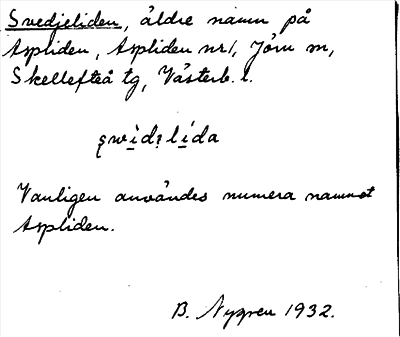 Svedjeliden, äldre namn på
Aspliden, Aspliden nr 1, Jörn sn,
Skellefteå tg, Västerb. l.
Vanligen användes numera namnet
Aspliden.
B. Nygren 1932.